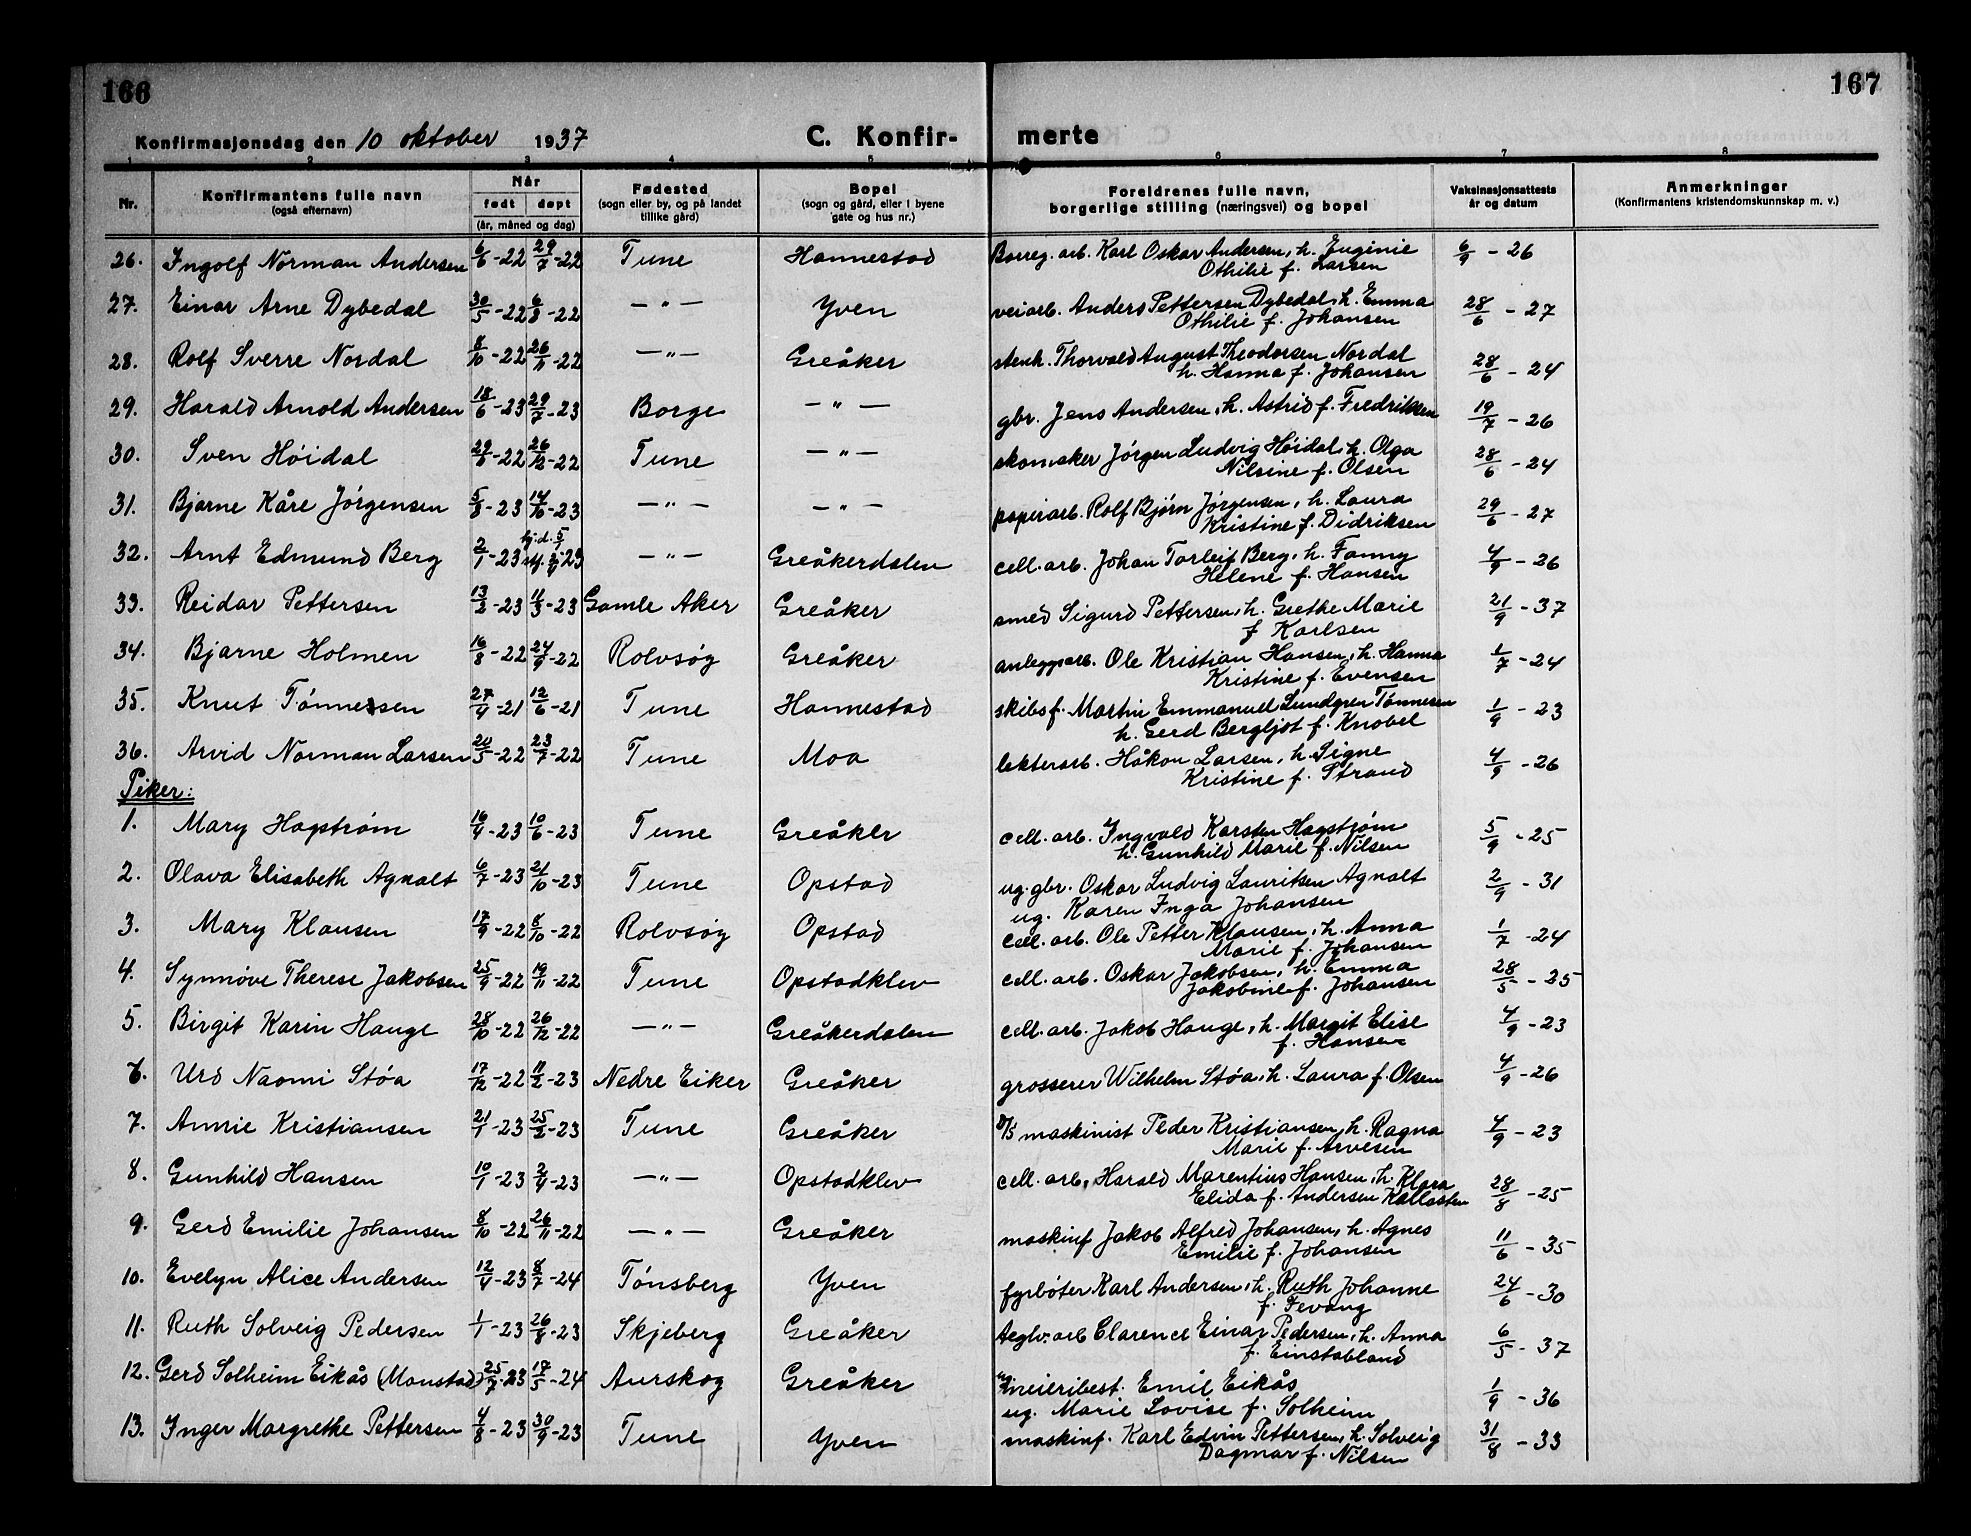 166
167
Konfirmasjonsdag den 10 oktober 1937
C. Konfir-
merte
1 2 3 4 5 6 7 8
Nr.
Konfirmantens fulle navn
(også efternavn)
Når
født døpt
(år, måned og dag)
Fødested
(sogn eller by, og på landet
tillike gård)
Bopel
(sogn og gård, eller i byene
gate og hus nr.)
Foreldrenes fulle navn,
borgerlige stilling (næringsvei) og bopel
Vaksinasjonsattests
år og datum
Anmerkninger
(Konfirmantens kristendomskunnskap m. v.)
26. Ingolf Norman Andersen 6/6-22 29/7-22 Tune Hannestad Borreg. arb. Karl Oskar Andersen, h. Euginie 6/9 - 26
Othilie f. Larsen
27. Einar Arne Dybedal 30/5-22 6/8-22 — " — Yven veiarb. Anders Pettersen Dybedal, h. Emma 28/6 - 27
Othilie f. Johansen
28. Rolf Sverre Nordal 8/10-22 26/11-22 — " — Greåker stenh. Thorvald August Theodorsen Nordal 28/6 - 24
h. Hanna f. Johansen
29. Harald Arnold Andersen 18/6-23 29/7-23 Borge — " — gbr. Jens Andersen, h. Astrid f. Fredriksen 19/7 - 26
30. Sven Höidal 29/6-22 26/12-22 Tune — " — skomaker Jörgen Ludvig Höidal, h. Olga 28/6 - 24
Nilsine f. Olsen
31. Bjarne Kåre Jörgensen 5/8-23 14/10-23 — " — — " — papirarb. Rolf Bjørn Jørgensen, h. Laura 29/6 - 27
Kristine f. Didriksen
hj.d. 5/1
32. Arnt Edmund Berg 2/1-23 stf. 2/4-23 — " — Greåkerdalen cell. arb. Johan Torleif Berg, h. Fanny 4/9 - 26
Helene f. Hansen
33. Reidar Pettersen 13/2-23 11/3-23 Gamle Aker Greåker smed Sigurd Pettersen, h. Grethe Marie 21/9 - 37
f Karlsen
34. Bjarne Holmen 16/8-22 24/9-22 Rolvsøy Greåker anleggsarb. Ole Kristian Hansen, h. Hanna 1/7 - 24
Kristine f. Evensen
35. Knut Tönnessen 27/4-21 12/6-21 Tune Hannestad skibsf. Martin Emmanuel Lundgren Tønnesen 1/9 - 23
h. Gerd Bergljot f. Knobel
36. Arvid Norman Larsen 20/5-22 23/7-22 Tune Moa lekterarb. Håkon Larsen, h. Signe 4/9 - 26
Kristine f. Strand
Piker:
1. Mary Hagstrøm 16/4-23 10/6-23 Tune Greåker cell. arb. Ingvald Karsten Hagstrøm 5/9 - 25
h. Gunhild Marie f. Nilsen
2. Olava Elisabeth Agnalt 6/7-23 21/10-23 Tune Opstad ug. gbr. Oskar Ludvig Lauritsen Agnalt 2/9 - 31
ug. Karen Inga Johansen
3. Mary Klausen 17/9-22 8/10-22 Rolvsøy Opstad cell. arb. Ole Petter Klausen, h. Anna 1/7 - 24
Marie f. Johansen
4. Synnøve Therese Jakobsen 25/9-22 19/11-22 Tune Opstadklev cell. arb. Oskar Jakobsen, h. Emma 28/5 - 25
Jakobine f. Johansen
5. Birgit Karin Hauge 28/10-22 26/12-22 — " — Greåkerdalen cell. arb. Jakob Hauge, h. Margit Elise 4/9 - 23
f. Hansen
6. Urd Naomi Støa 17/12-22 11/2-23 Nedre Eiker Greåker grosserer Wilhelm Støa, h. Laura f. Olsen 4/9 - 26
7. Annie Kristiansen 21/1-23 25/2-23 Tune Greåker maskinist Peder Kristiansen, h. Ragna 4/9 - 23
Marie f. Arvesen
8. Gunhild Hansen 10/1-23 2/4-23 — " — Opstadklev cell. arb. Harald Marentius Hansen, h. Klara 28/8 - 25
Elida f. Andersen Kallåsten
9. Gerd Emilie Johansen 8/10-22 26/11-22 — " — Greåker maskinf Jakob Alfred Johansen, h. Agnes 11/6 - 35
Emilie f. Johansen
10. Evelyn Alice Andersen 12/4-23 8/7-24 Tönsberg Yven fyrbøter Karl Andersen, h. Ruth Johanne 24/6 - 30
f. Fevang
11. Ruth Solveig Pedersen 1/1-23 26/8-23 Skjeberg Greåker teglv. arb Clarence Einar Pedersen, h. Anna 6/5 - 37
f. Einstabland
12. Gerd Solheim Eikås (Monstad) 25/7-23 17/5-24 Aurskog Greåker meieribest. Emil Eikås 1/9 - 36
ug. Marie Lovise f. Solheim
13. Inger Margrethe Pettersen 4/8-23 30/9-23 Tune Yven maskinf. Karl Edvin Pettersen, h. Solveig 31/8 - 33
Dagmar f. Nilsen